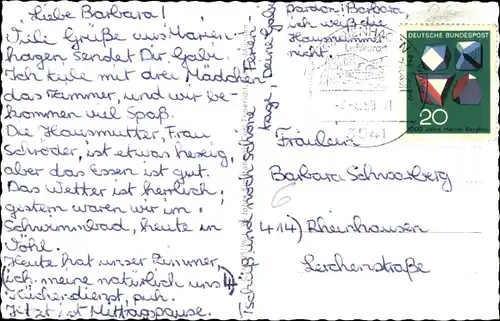 Liebe Barbara!
Viele Grüße aus Marien-
hagen sendet Dir Gabi.
Ich teile mit drei Mädchen
das Zimmer, und wir be-
kommen viel Spaß.
Die Hausmutter, Frau
Schröder, ist etwas herzig,
aber das Essen ist gut.
Das Wetter ist herrlich,
gestern waren wir im
Schwimmbad, heute in
Vöhl.
Heute hat unser Zimmer,
(ich meine natürlich uns 4)
Küchendienst, puh.
Jetzt ist Mittagspause.
Tschüß und noch schöne Ferien-
tage, Deine Gabi
pardon, Barbara,
ich weiß die
Hausnummer
nicht.
Luftkurort
3541
DEUTSCHE BUNDESPOST
20
1000 Jahre Harzer Bergbau
Fräulein
Barbara Schwarberg
6
414) Rheinhausen
Lerchenstraße